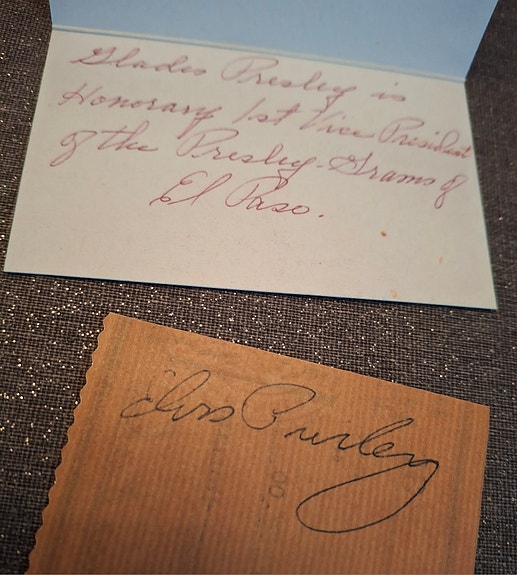 Gladys Presley is
Honorary 1st Vice President
of the Presley-Grams of
El Paso.
Elvis Presley